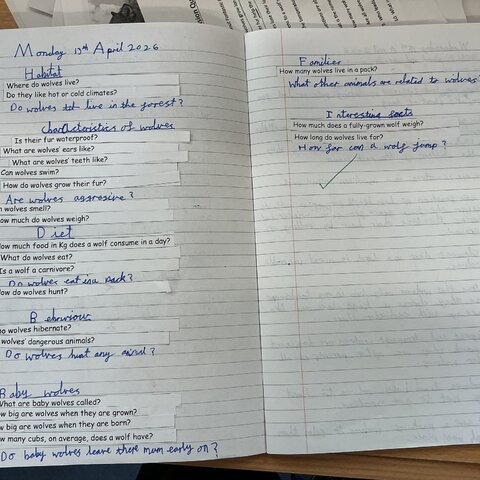 Monday 13th April 2026
Habitat
Where do wolves live?
Do they like hot or cold climates?
Do wolves live in the forest?
Characteristics of wolves
Is their fur waterproof?
What are wolves' ears like?
What are wolves' teeth like?
Can wolves swim?
How do wolves grow their fur?
Are wolves aggressive?
wolves smell?
How much do wolves weigh?
Diet
How much food in Kg does a wolf consume in a day?
What do wolves eat?
Is a wolf a carnivore?
Do wolves eat in a pack?
How do wolves hunt?
Behaviour
wolves hibernate?
wolves' dangerous animals?
Do wolves hunt any animal?
Baby wolves
What are baby wolves called?
How big are wolves when they are grown?
How big are wolves when they are born?
How many cubs, on average, does a wolf have?
Do baby wolves leave there mum early on?
Families
How many wolves live in a pack?
What other animals are related to wolves?
Interesting facts
How much does a fully-grown wolf weigh?
How long do wolves live for?
How far can a wolf jump?